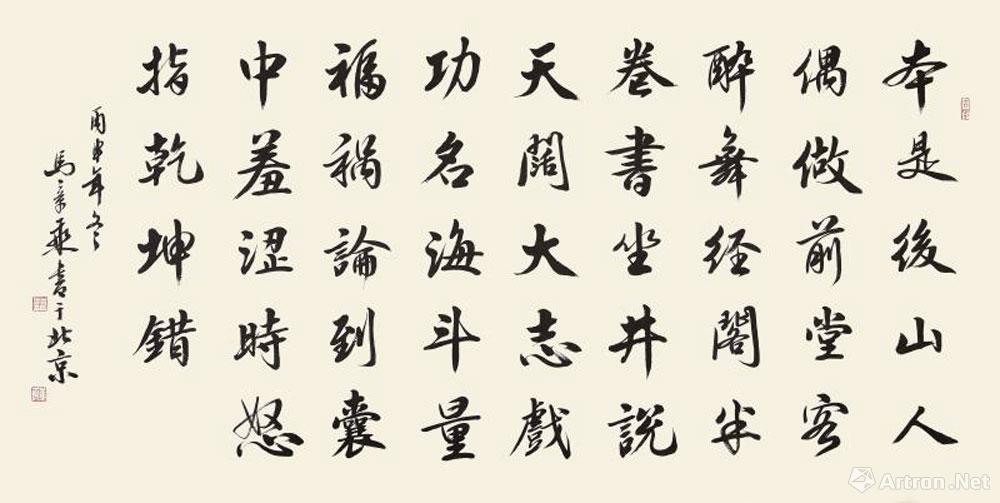 本是後山人
偶做前堂客
醉舞經閣半
卷書坐井説
天闊大志戲
功名海斗量
福禍論到囊
中羞涩時怒
指乾坤錯
丙申年冬
馬章乘书于北京
Artron.Net